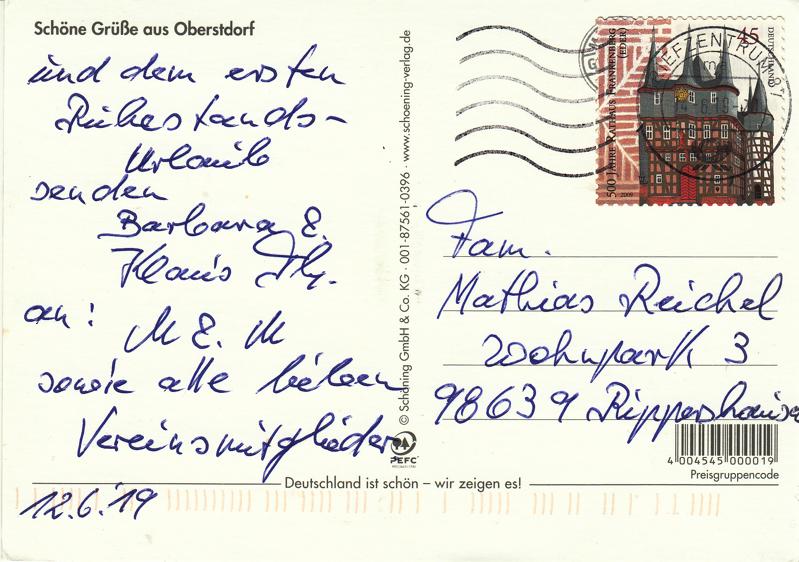 Schöne Grüße aus Oberstdorf
und dem ersten
Ruhestands-
Urlaub
senden
Barbara &
Klaus Th.
an:
M & M
sowie alle lieben
Vereinsmitglieder
12.6.'19
© Schöning GmbH & Co. KG · 001-87561-0396 · www.schoening-verlag.de
PEFC
Deutschland ist schön – wir zeigen es!
500 JAHRE RATHAUS FRANKENBERG
(EDER)
2009
45
DEUTSCHLAND
BRIEFZENTRUM
Fam.
Mathias Reichel
Wohnpark 3
98639 Rippershausen
4 004545 000019
Preisgruppencode